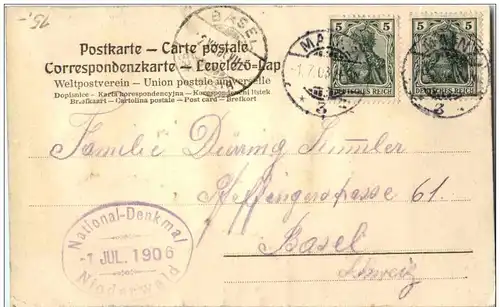 15.-
BASEL
Postkarte – Carte postale
Correspondenzkarte – Levelező-Lap
Weltpostverein – Union postale universelle
Dopisnice - Karta korespondencyjna - Korespondenční lístek
Brefkaart - Cartolina postale - Post card - Brefkort
5 5
5 5
DEUTSCHES REICH
DEUTSCHES REICH
MAINZ
2
Familie
61.
Basel
Schweiz
National-Denkmal
-1 JUL. 1906
Niederwald